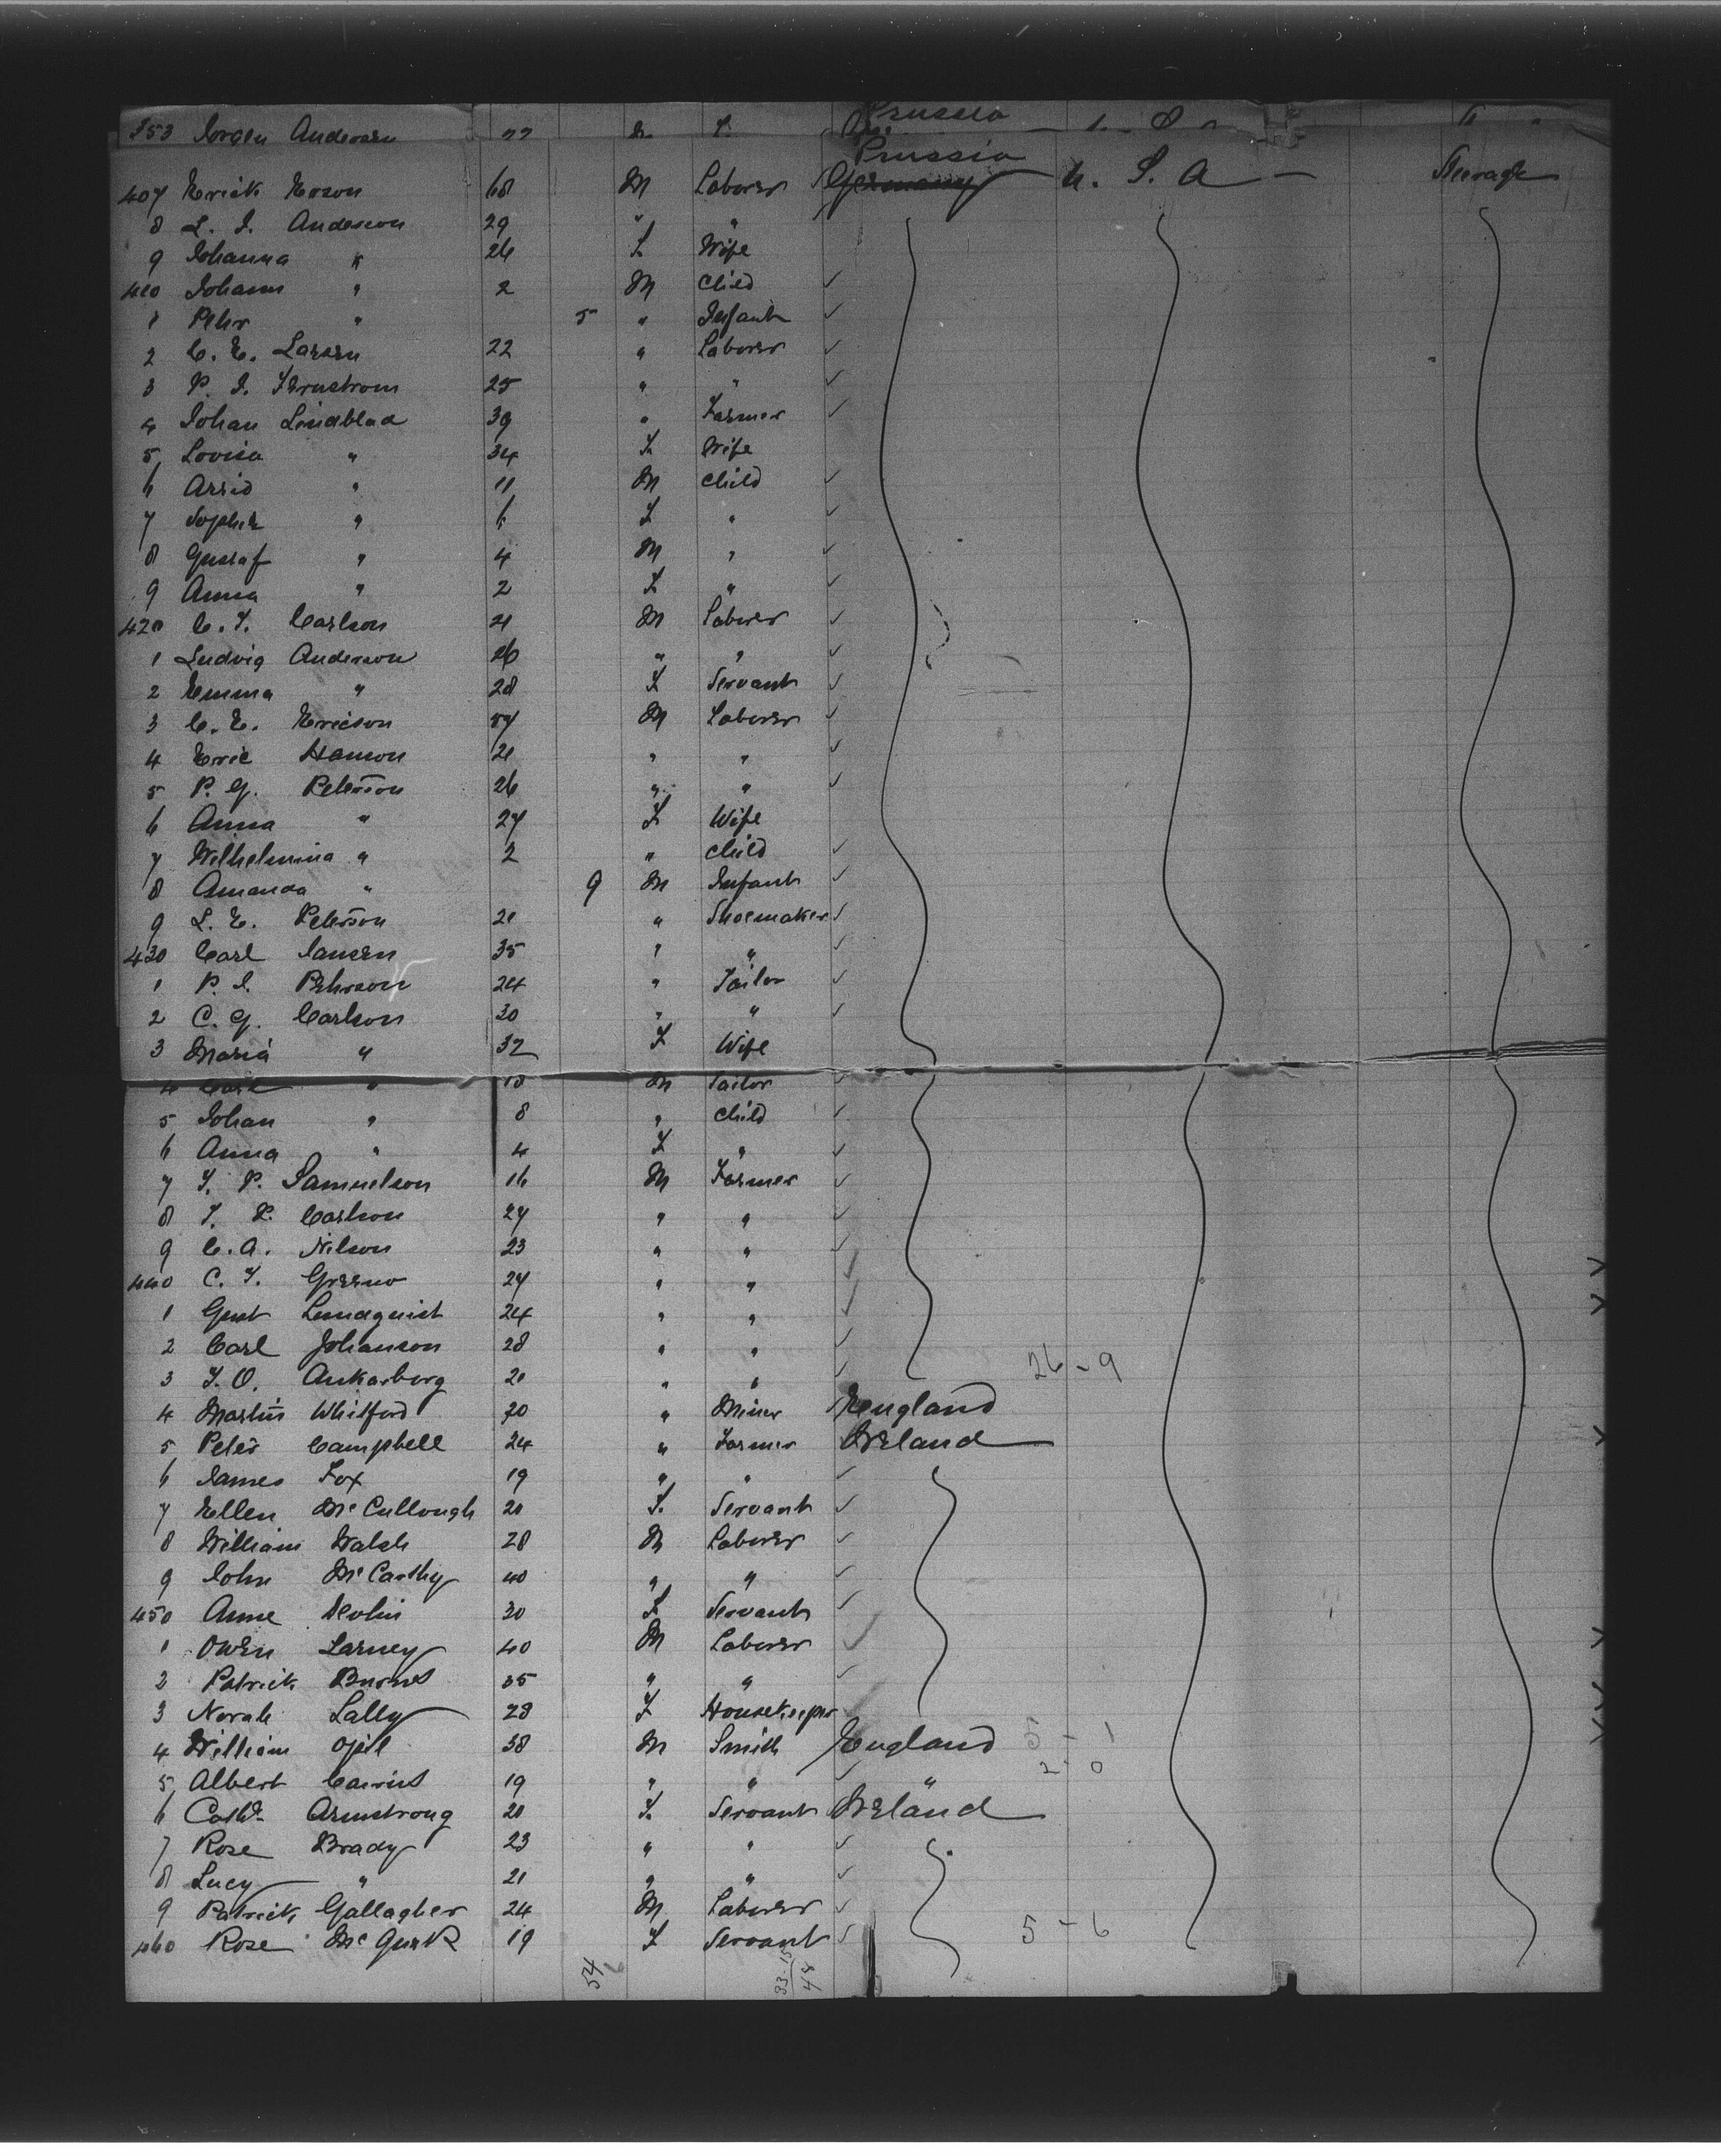 353 Jorgen Andersen 22 " Prussia
Prussia
407 Erick Erson 60 M Laborer Germany U. S. A Steerage
8 L. J. Anderson 29 " "
9 Johanna " 26 F Wife
410 Johann " 2 M Child
1 Pehr " 5 " Infant
2 C. E. Larsen 22 " Laborer
3 P. J. Fernstrom 25 " "
4 Johan Lindblad 39 " Farmer
5 Lovisa " 34 F Wife
6 Arvid " 11 M Child
7 Sophia " 6 F "
8 Gustaf " 4 M "
9 Anna " 2 F "
420 C. F. Carlson 21 M Laborer
1 Ludvig Anderson 26 " "
2 Emma " 28 F Servant
3 C. E. Ericson 57 M Laborer
4 Eric Hanson 21 " "
5 P. G. Peterson 26 " "
6 Anna " 27 F Wife
7 Wilhelmina " 2 " Child
8 Amanda " 9 M Infant
9 L. E. Peterson 21 " Shoemaker
430 Carl Jansen 35 " "
1 P. J. Pehrson 24 " Tailor
2 C. G. Carlson 30 " "
3 Maria " 32 F Wife
4 Carl " 10 M Tailor
5 Johan " 8 " Child
6 Anna " 4 F "
7 F. P. Samuelson 16 M Farmer
8 F. P. Carlson 27 " "
9 C. A. Nilson 23 " "
440 C. F. 27 " "
1 Gust Lundquist 24 " "
2 Carl Johanson 28 " "
26-9
3 F. O. Ankarberg 21 " "
4 Martin Whitford 20 " Miner England
5 Peter Campbell 24 " Farmer Ireland
6 James Fox 19 " "
7 Ellen McCullough 20 F. Servant
8 William Walsh 28 M Laborer
9 John McCarthy 40 " "
450 Anne Devlin 30 F Servant
1 Owen Larney 40 M Laborer
2 Patrick Burns 35 " "
3 Norah Lally 28 F Housekeeper
4 William 38 M Smith England 5-1
2-0
5 Albert Cairns 19 " " "
6 Cath. Armstrong 20 F. Servant Ireland
7 Rose Brady 23 " "
8 Lucy " 21 " "
9 Patrick Gallagher 24 M Laborer
460 Rose McGurk 19 F Servant 5-6
54
33.15
48